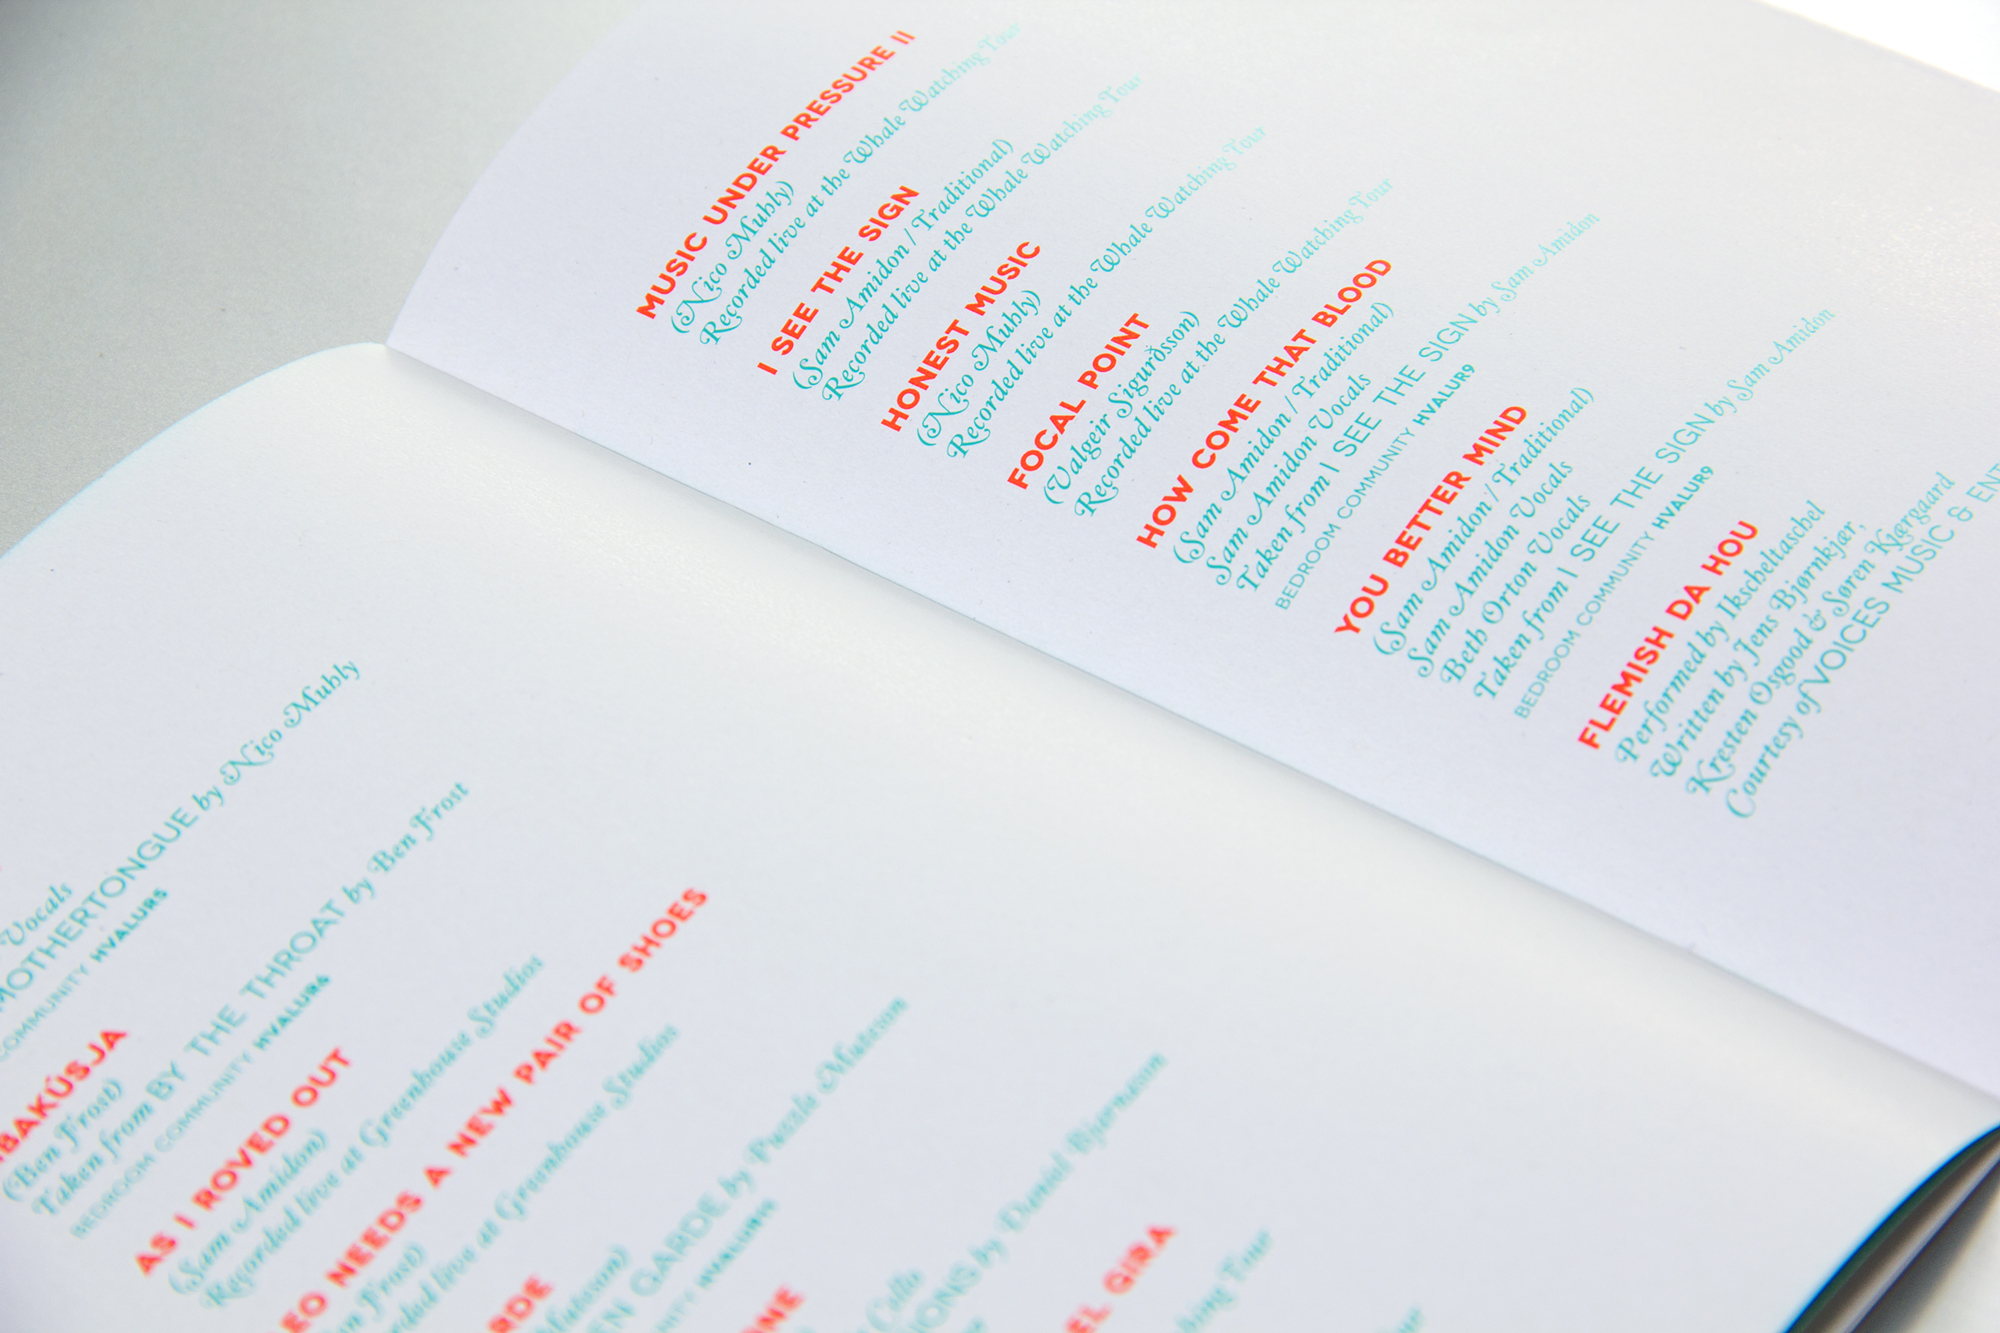 MUSIC UNDER PRESSURE II
(Nico Muhly)
Recorded live at the Whale Watching Tour
I SEE THE SIGN
(Sam Amidon / Traditional)
Recorded live at the Whale Watching Tour
HONEST MUSIC
(Nico Muhly)
Recorded live at the Whale Watching Tour
FOCAL POINT
(Valgeir Sigurðsson)
Recorded live at the Whale Watching Tour
HOW COME THAT BLOOD
(Sam Amidon / Traditional)
Sam Amidon Vocals
Taken from I SEE THE SIGN by Sam Amidon
BEDROOM COMMUNITY HVALUR9
YOU BETTER MIND
(Sam Amidon / Traditional)
Sam Amidon Vocals
Beth Orton Vocals
Taken from I SEE THE SIGN by Sam Amidon
BEDROOM COMMUNITY HVALUR9
FLEMISH DA HOU
Performed by Ikscheltaschel
Written by Jens Bjørnkjær,
Kresten Osgood & Søren Kjærgaard
Courtesy of VOICES MUSIC & ENT
Vocals
MOTHERTONGUE by Nico Muhly
COMMUNITY HVALUR5
BAKÚSJA
(Ben Frost)
Taken from BY THE THROAT by Ben Frost
BEDROOM COMMUNITY HVALUR6
AS I ROVED OUT
(Sam Amidon)
Recorded live at Greenhouse Studios
LEO NEEDS A NEW PAIR OF SHOES
Frost)
live at Greenhouse Studios
RDE
Muteson)
EN GARDE by Puzzle Muteson
ONE
Cello
IONS by Daníel Bjarnason
EL GIRA
Tour